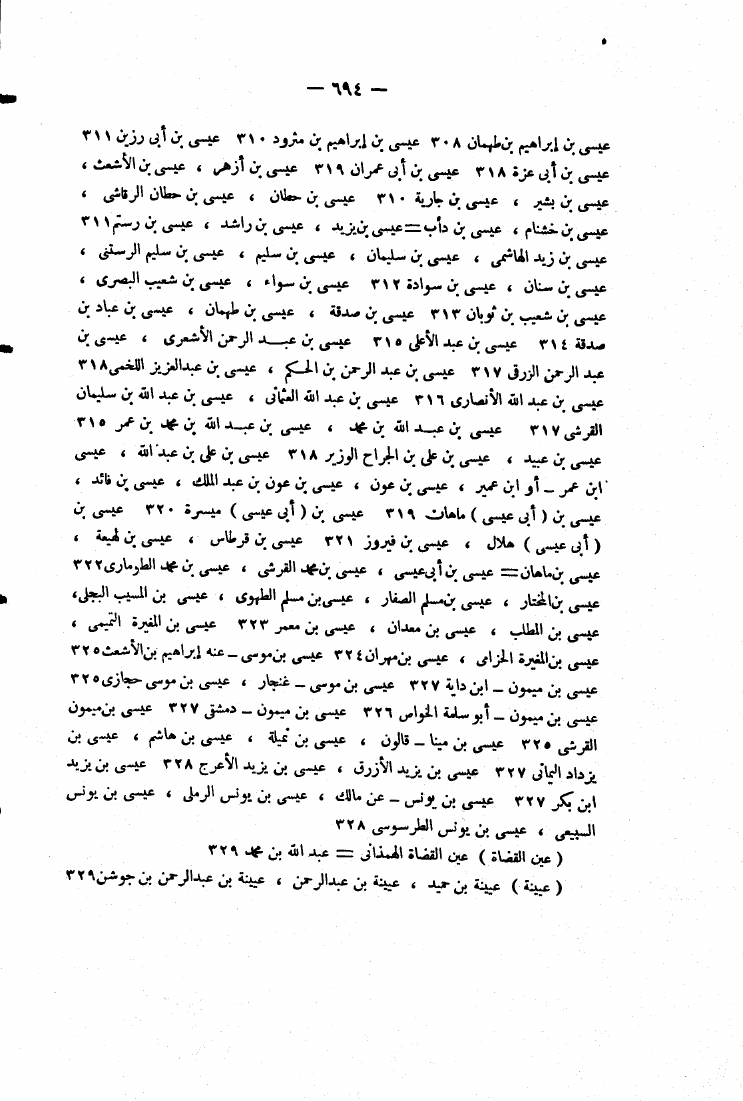 — ٦٩٤ —
عيسى بن إبراهيم بن طهمان ٣٠٨ عيسى بن إبراهيم بن مثرود ٣١٠ عيسى بن أبى رزين ٣١١
عيسى بن أبى عزة ٣١٨ عيسى بن أبى عمران ٣١٩ عيسى بن أزهر ، عيسى بن الأشعث ،
عيسى بن بشير ، عيسى بن جارية ٣١٠ عيسى بن حطان ، عيسى بن حطان الرقاشى ،
عيسى بن خشنام ، عيسى بن دأب = عيسى بن يزيد ، عيسى بن راشد ، عيسى بن رستم ٣١١
عيسى بن زيد الهاشمى ، عيسى بن سليمان ، عيسى بن سليم ، عيسى بن سليم الرستنى ،
عيسى بن سنان ، عيسى بن سوادة ٣١٢ عيسى بن سواء ، عيسى بن شعيب البصرى ،
عيسى بن شعيب بن ثوبان ٣١٣ عيسى بن صدقة ، عيسى بن طهمان ، عيسى بن عباد بن
صدقة ٣١٤ عيسى بن عبد الأعلى ٣١٥ عيسى بن عبد الرحمن الأشعرى ، عيسى بن
عبد الرحمن الزرقى ٣١٧ عيسى بن عبد الرحمن بن الحكم ، عيسى بن عبدالعزيز اللخمى ٣١٨
عيسى بن عبد الله الأنصارى ٣١٦ عيسى بن عبد الله العثمانى ، عيسى بن عبد الله بن سليمان
القرشى ٣١٧ عيسى بن عبد الله بن محمد ، عيسى بن عبد الله بن محمد بن عمر ٣١٥
عيسى بن عبيد ، عيسى بن على بن الجراح الوزير ٣١٨ عيسى بن على بن عبد الله ، عيسى
ابن عمر – أو ابن عمير ، عيسى بن عون ، عيسى بن عون بن عبد الملك ، عيسى بن فائد ،
عيسى بن ( أبى عيسى ) ماهان ٣١٩ عيسى بن ( أبى عيسى ) ميسرة ٣٢٠ عيسى بن
( أبى عيسى ) هلال ، عيسى بن فيروز ٣٢١ عيسى بن قرطاس ، عيسى بن لهيعة ،
عيسى بن ماهان = عيسى بن أبى عيسى ، عيسى بن محمد القرشى ، عيسى بن محمد الطومارى ٣٢٢
عيسى بن المختار ، عيسى بن مسلم الصفار ، عيسى بن مسلم الطهوى ، عيسى بن المسيب البجلى ،
عيسى بن المطلب ، عيسى بن معدان ، عيسى بن معمر ٣٢٣ عيسى بن المغيرة التميمى ،
عيسى بن المغيرة الحزامى ، عيسى بن مهران ٣٢٤ عيسى بن موسى – عنه إبراهيم بن الأشعث ٣٢٥
عيسى بن ميمون – ابن داية ٣٢٧ عيسى بن موسى – غنجار ، عيسى بن موسى حجازى ٣٢٥
عيسى بن ميمون – أبو سلمة الخواص ٣٢٦ عيسى بن ميمون – دمشقى ٣٢٧ عيسى بن ميمون
القرشى ٣٢٥ عيسى بن مينا – قالون ، عيسى بن نميلة ، عيسى بن هاشم ، عيسى بن
يزداد اليمانى ٣٢٧ عيسى بن يزيد الأزرق ، عيسى بن يزيد الأعرج ٣٢٨ عيسى بن يزيد
ابن بكر ٣٢٧ عيسى بن يونس – عن مالك ، عيسى بن يونس الرملى ، عيسى بن يونس
السبيعى ، عيسى بن يونس الطرسوسى ٣٢٨
( عين القضاة ) عين القضاة الهمذانى = عبد الله بن محمد ٣٢٩
( عيينة ) عيينة بن حميد ، عيينة بن عبدالرحمن ، عيينة بن عبدالرحمن بن جوشن ٣٢٩